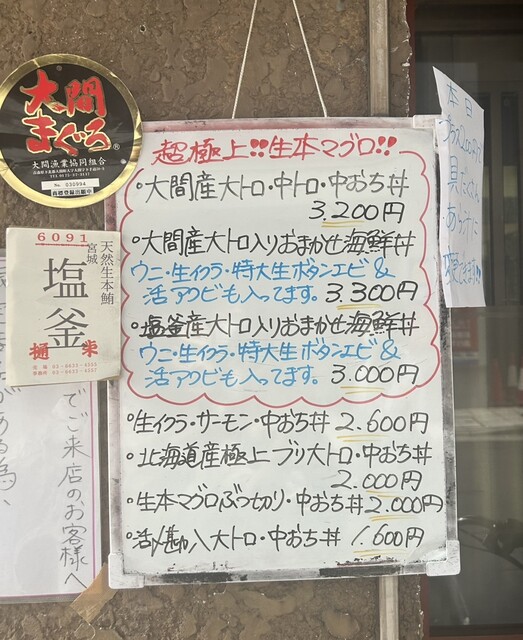 大間
まぐろ
大間漁業協同組合
No. 030994
6091
天然生本鮪
宮城
塩釜
樋栄
超極上!!生本マグロ!!
・大間産大トロ・中トロ・中おち丼
3,200円
・大間産大トロ入りおまかせ海鮮丼
ウニ・生イクラ・特大生ボタンエビ&
活アワビも入ってます。3,300円
・塩釜産大トロ入りおまかせ海鮮丼
ウニ・生イクラ・特大生ボタンエビ&
活アワビも入ってます。3,000円
・生イクラ・サーモン・中おち丼 2,600円
・北海道産極上ブリ大トロ・中おち丼
2,000円
・生本マグロぶつ切り・中おち丼 2,000円
・活〆勘八大トロ・中おち丼 1,600円
本日
でご来店のお客様へ
がある為、